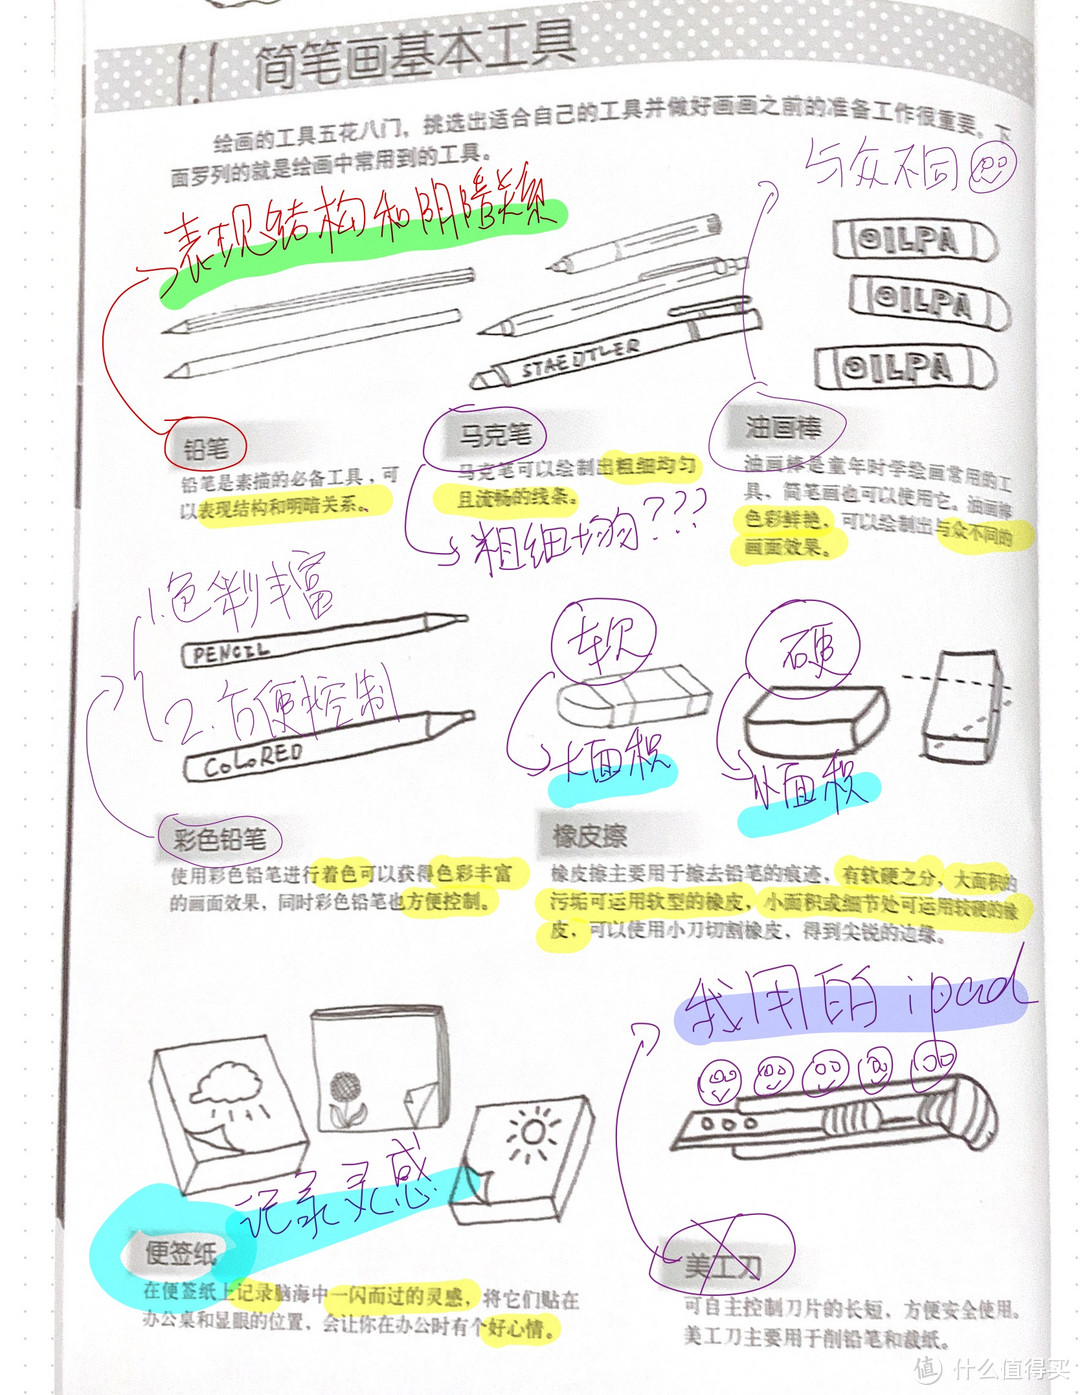 1.1 简笔画基本工具
绘画的工具五花八门，挑选出适合自己的工具并做好画画之前的准备工作很重要。下
面罗列的就是绘画中常用到的工具。
与众不同
表现结构和阴暗关系
OILPA
OILPA
OILPA
STAEDTLER
铅笔
铅笔是素描的必备工具，可
以表现结构和明暗关系。
马克笔
马克笔可以绘制出粗细均匀
且流畅的线条。
粗细均匀???
油画棒
油画棒是童年时学绘画常用的工
具，简笔画也可以使用它。油画棒
色彩鲜艳，可以绘制出与众不同的
画面效果。
1.色彩丰富
PENCIL
2.方便控制
COLORED
软
大面积
硬
小面积
彩色铅笔
使用彩色铅笔进行着色可以获得色彩丰富
的画面效果，同时彩色铅笔也方便控制。
橡皮擦
橡皮擦主要用于擦去铅笔的痕迹，有软硬之分，大面积的
污垢可运用软型的橡皮，小面积或细节处可运用较硬的橡
皮，可以使用小刀切割橡皮，得到尖锐的边缘。
我用的ipad
记录灵感
便签纸
在便签纸上记录脑海中一闪而过的灵感，将它们贴在
办公桌和显眼的位置，会让你在办公时有个好心情。
美工刀
可自主控制刀片的长短，方便安全使用。
美工刀主要用于削铅笔和裁纸。
值 什么值得买